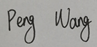 Peng Wang